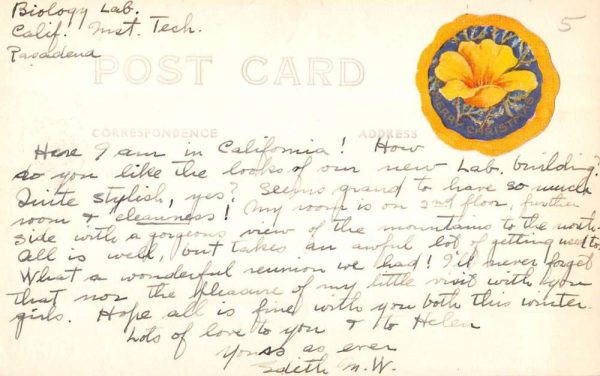 Biology Lab.
Calif. Inst. Tech.
Pasadena
5
POST CARD
MERRY CHRISTMAS
CORRESPONDENCE ADDRESS
Here I am in California! How
do you like the looks of our new Lab. building?
Quite stylish, yes? Seems grand to have so much
room & cleanness! My room is on 2nd floor, further
side with a gorgeous view of the mountains to the north.
All is well, but takes an awful lot of getting used to.
What a wonderful reunion we had! I'll never forget
that nor the pleasure of my little visit with you
girls. Hope all is fine with you both this winter.
Lots of love to you & to Helen
Yours as ever
Edith M. W.